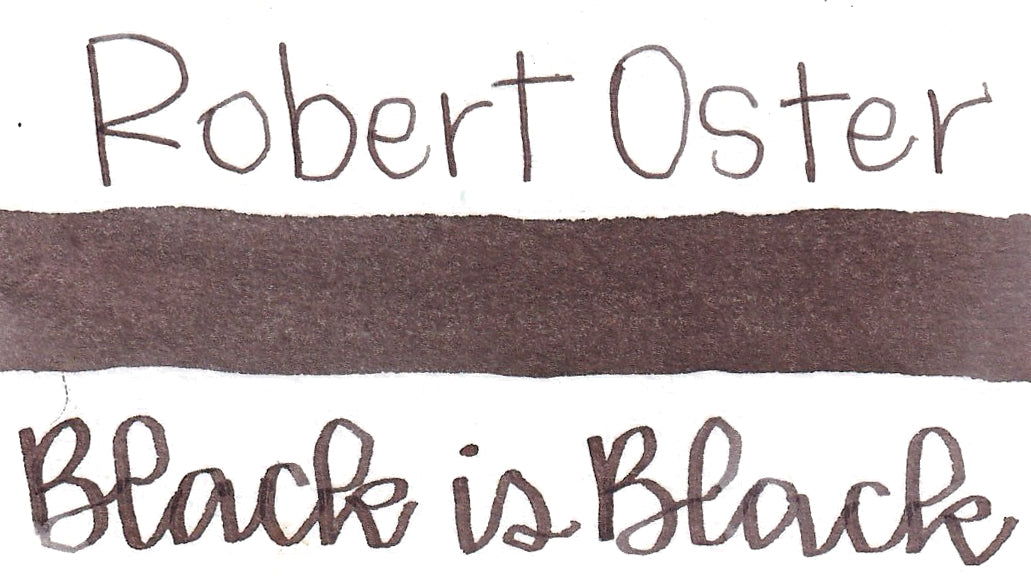 Robert Oster
Black is Black